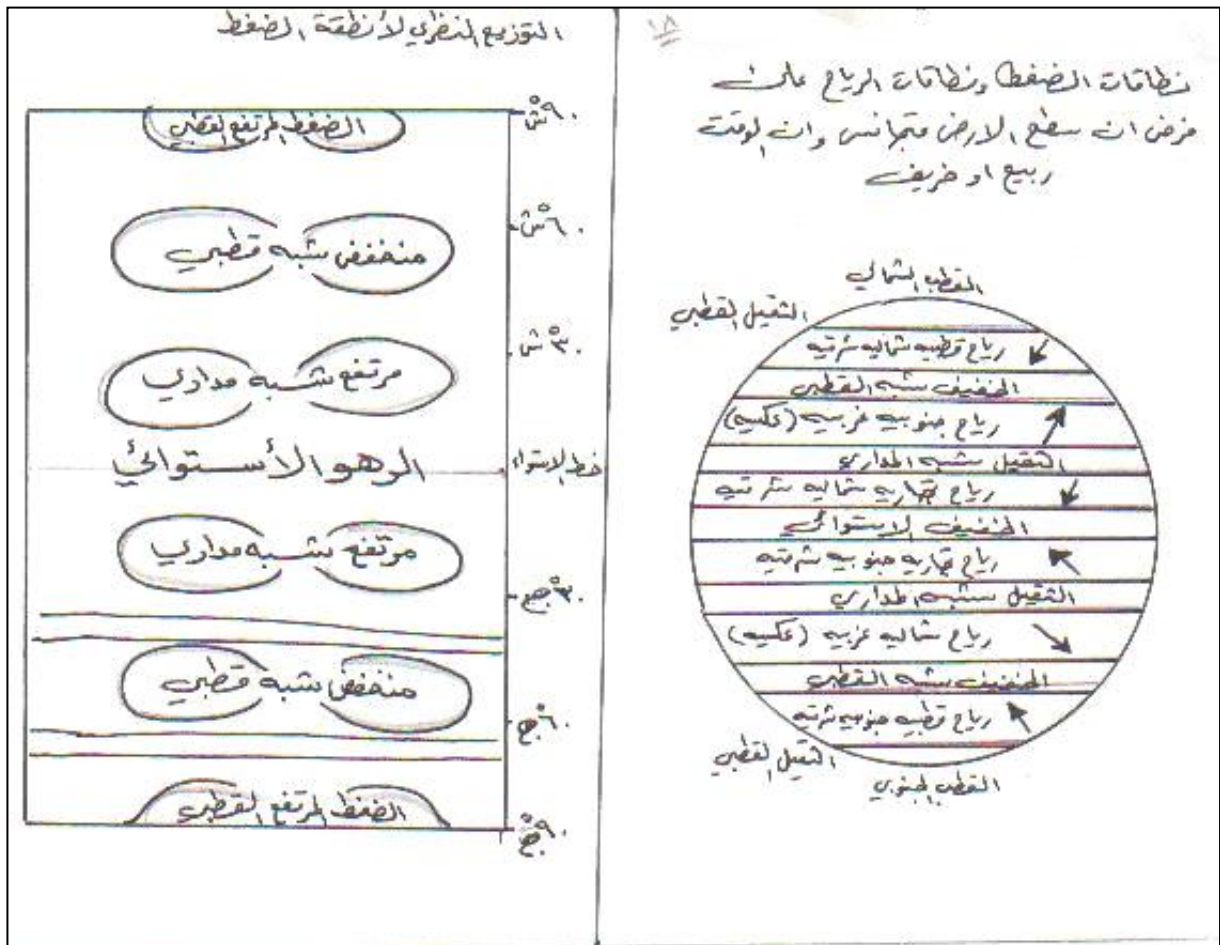 ١٨
نطاقات الضغط ونطاقات الرياح على
فرض ان سطح الارض متجانس وان الوقت
ربيع او خريف
القطب الشمالي
الثقيل القطبي
رياح قطبيه شماليه شرقيه
الخفيف شبه القطبي
رياح جنوبيه غربيه (عكسيه)
الثقيل شبه المداري
رياح تجاريه شماليه شرقيه
الخفيف الاستوائي
رياح تجاريه جنوبيه شرقيه
الثقيل شبه المداري
رياح شماليه غربيه (عكسيه)
الخفيف شبه القطبي
رياح قطبيه جنوبيه شرقيه
الثقيل القطبي
القطب الجنوبي
التوزيع النظري لأنظقة الضغط
٩٠°ش
الضغط المرتفع القطبي
٦٠°ش
منخفض شبه قطبي
٣٠°ش
مرتفع شبه مداري
خط الاستواء
الرهو الأستوائي
مرتفع شبه مداري
٣٠°ج
منخفض شبه قطبي
٦٠°ج
الضغط المرتفع القطبي
٩٠°ج